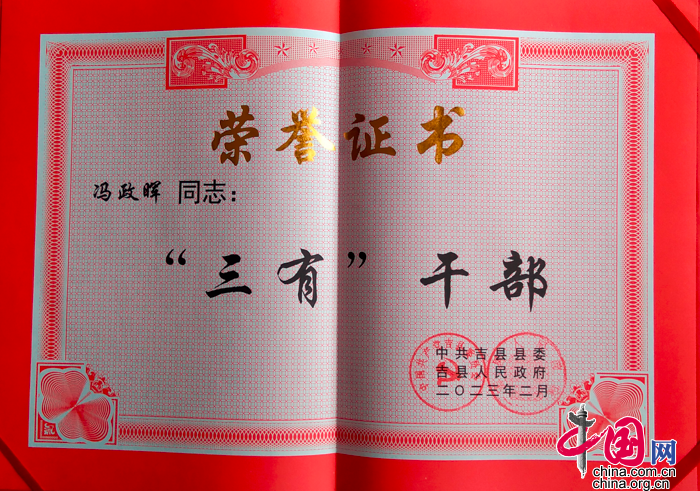 荣誉证书
冯政晖 同志：
“三有”干部
中共吉县县委
吉县人民政府
二〇二三年二月
中国网
china.com.cn
china.org.cn